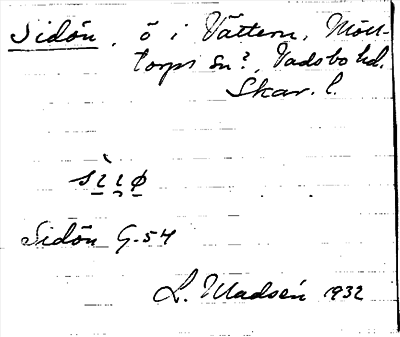 Sidön, ö i Vättern, Möll-
torps sn?, Vadsbo hd.
Skar. l.
Sidön G-54
L. Madsén 1932